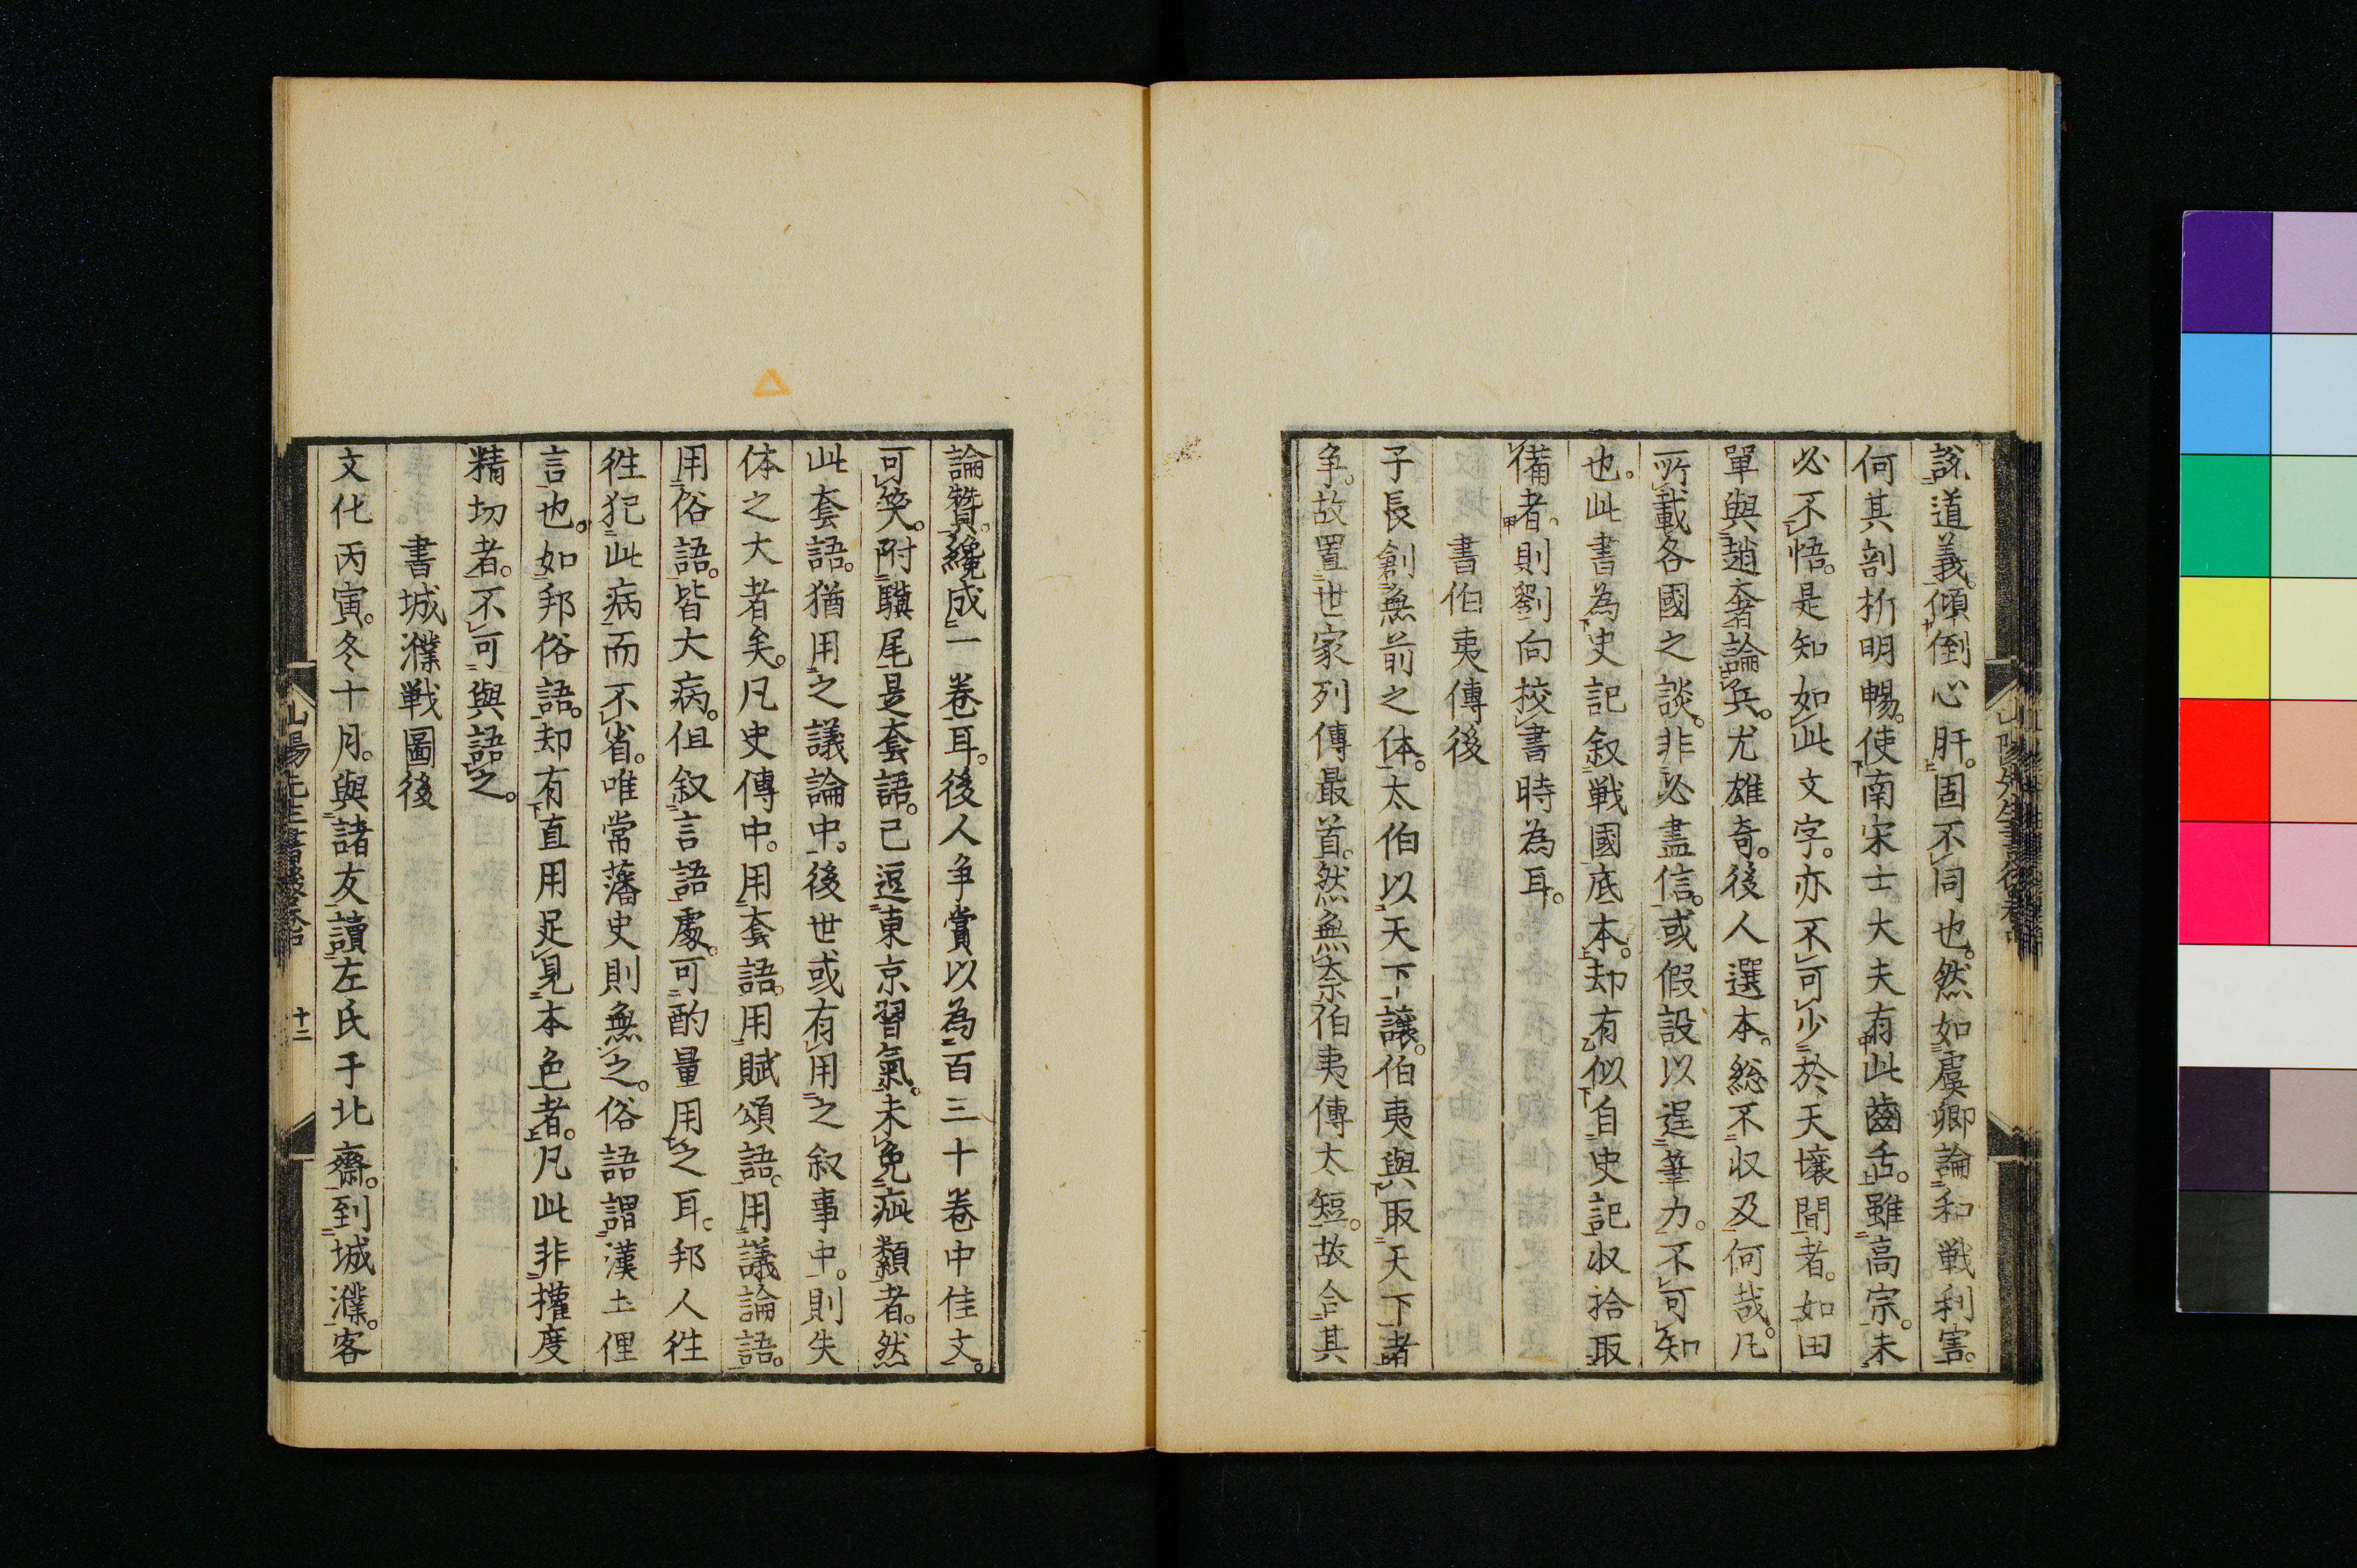 説道義。傾倒心肝。固不同也。然如虞卿論和戦利害。
何其剖析明暢。使南宋士大夫有此齒舌。雖高宗。未
必不悟。是知如此文字。亦不可少於天壤間者。如田
單與趙奢論兵。尤雄奇。後人選本。総不収及何哉。凡
所載各國之談。非必盡信。或假設以逞筆力。不可知
也。此書為史記叙戦國底本。却有似自史記収拾取
備者。則劉向校書時為耳。
書伯夷傳後
子長創無前之体。太伯以天下讓。伯夷與取天下者
争。故置世家列傳最首。然無奈伯夷傳太短。故合其
論贊。纔成一卷耳。後人争賞以為百三十卷中佳文。
可笑。附驥尾是套語。已逗東京習氣。未免疵纇者。然
此套語。猶用之議論中。後世或有用之叙事中。則失
体之大者矣。凡史傳中。用套語。用賦頌語。用議論語。
用俗語。皆大病。但叙言語處。可酌量用之耳。邦人徃
徃犯此病而不省。唯常藩史則無之。俗語謂漢土俚
言也。如邦俗語。却有直用足見本色者。凡此非權度
精切者。不可與語之。
書城濮戦圖後
文化丙寅。冬十月。與諸友讀左氏于北齋。到城濮。客
山陽先生書後卷中 十二